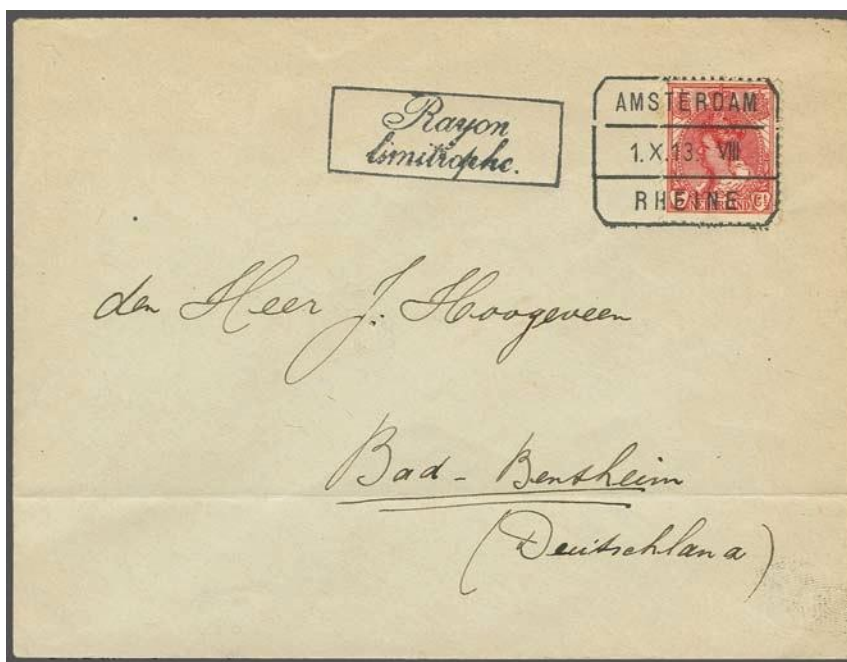 Rayon
limitrophe.
AMSTERDAM
1.X.13. VIII
RHEINE
den Heer J. Hoogeveen
Bad-Bentheim
(Deutschland)